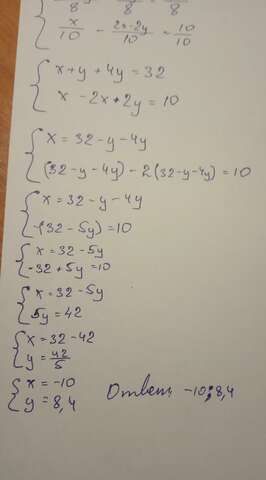 8 8 8
x/10 - 2x-2y/10 = 10/10
x+y+4y=32
x-2x+2y=10
x=32-y-4y
(32-y-4y)-2(32-y-4y)=10
x=32-y-4y
-(32-5y)=10
x=32-5y
-32+5y=10
x=32-5y
5y=42
x=32-42
y=42/5
x=-10
y=8,4 Ответ: -10; 8,4